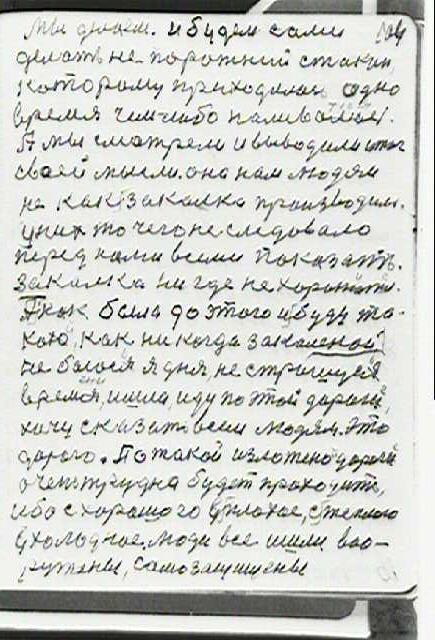 Мы делаем. и будем сами
делать не порожний стакан,
которому приходилось одно
время чем либо наливался.
А мы смотрели и выводили
своей мысли она нам людям
не как закалка производил.
у них то чего не следовало
перед нами всеми показать.
закалка ни где не
Я как была до этого и буду та-
кою, как никогда закаленой
не боюся я дня, не страшуся
время, ишла, иду по этой дароги,
хочу сказать всем людям. Это
дорого. По такой изложено дороги
очень трудна будет проходить,
ибо с хорошого у плохое, с теплого
у холодное. люди все ишли воо-
ружены, самозащищены